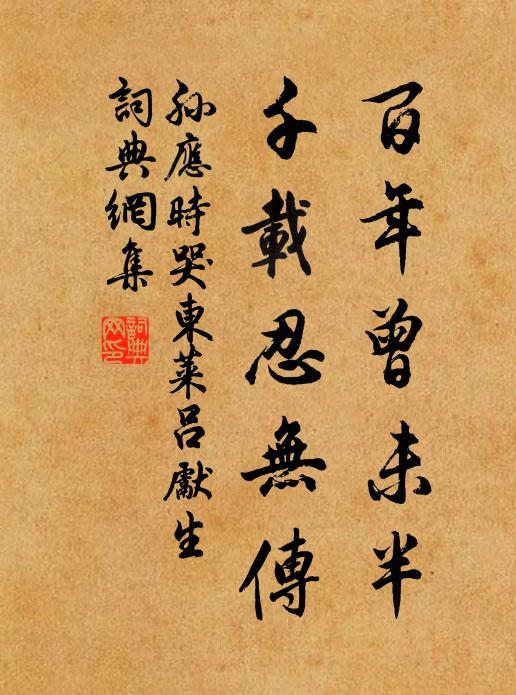 百年曾未半
千載忍無傳
孫應時哭東萊呂獻生
詞典網集
詞典網印